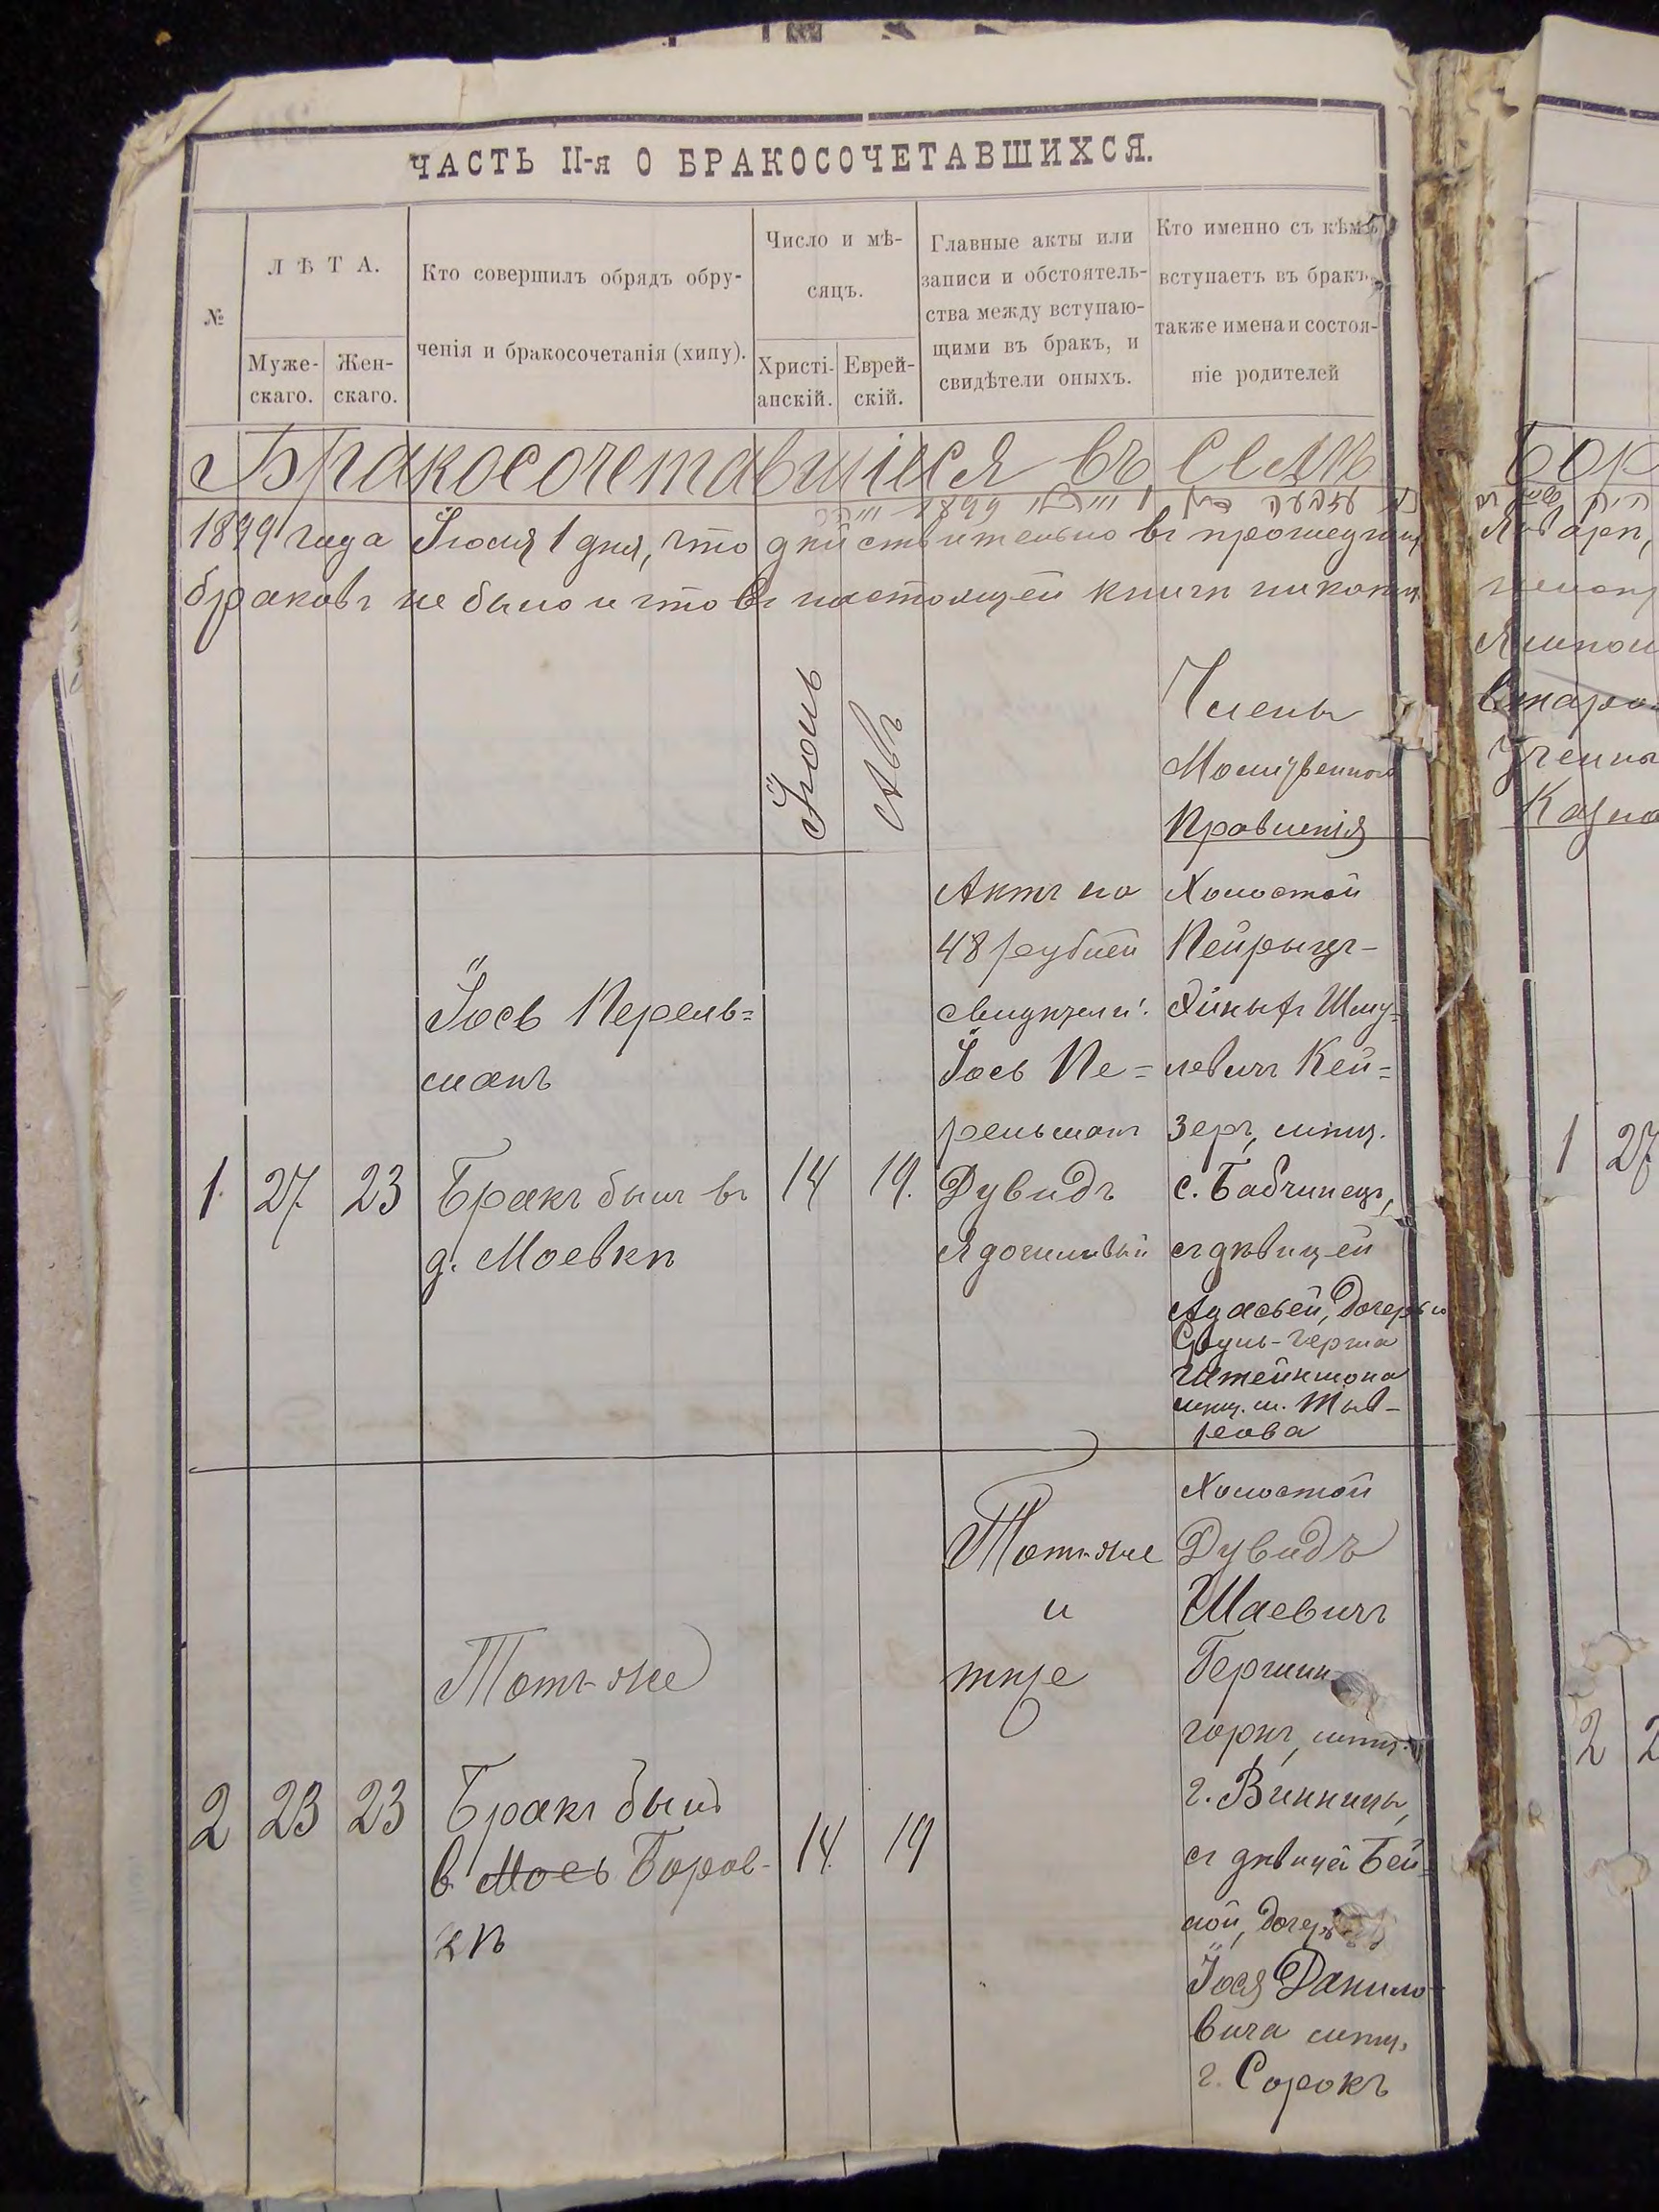 ЧАСТЬ II-я О БРАКОСОЧЕТАВШИХСЯ.
№
ЛѢТА.
Муже-
скаго.
Жен-
скаго.
Кто совершилъ обрядъ обру-
ченія и бракосочетанія (хипу).
Число и мѣ-
сяцъ.
Христі-
анскій.
Еврей-
скій.
Главные акты или
записи и обстоятель-
ства между вступаю-
щими въ бракъ, и
свидѣтели оныхъ.
Кто именно съ кѣмъ
вступаетъ въ бракъ,
также имена и состоя-
ніе родителей
Бракосочетавшіеся въ селѣ
1899 года Іюля 1 дня, что дѣйствительно въ
браковъ не было и что въ настоящей книгѣ
Іюль
Авъ
Члены
Молитвеннаго
Правленія
1.
27
23
Іось Перель=
манъ
Бракъ былъ въ
д. Моевкѣ
14
19.
Актъ на
48 рублей
свидѣтели:
Іось Пе=
рельманъ
Дувидъ
Холостой
Пейрыцъ-
Шму=
левичъ Кей=
зеръ, мѣщ.
с. Бабчинецъ,
съ дѣвицей
Адасьей, дочерью
Сруль-Герша
Штейнмана
мѣщ. м. Тыв-
рова
2
23
23
Тотъ-же
Бракъ былъ
в Моев Боров-
кѣ
14.
19
Тотъ-же
и
тѣже
Холостой
Дувидъ
Шаевичъ
Гершин
горнъ, мѣщ.
г. Винницы,
съ дѣвицей Бей=
лой, дочерью
Іося Данило-
вича мѣщ.
г. Сорокъ
1
27
2
2